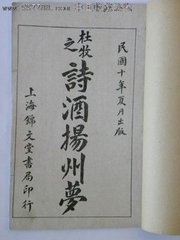 民國十年夏月出版
杜牧之
詩酒揚州夢
上海錦文堂書局印行